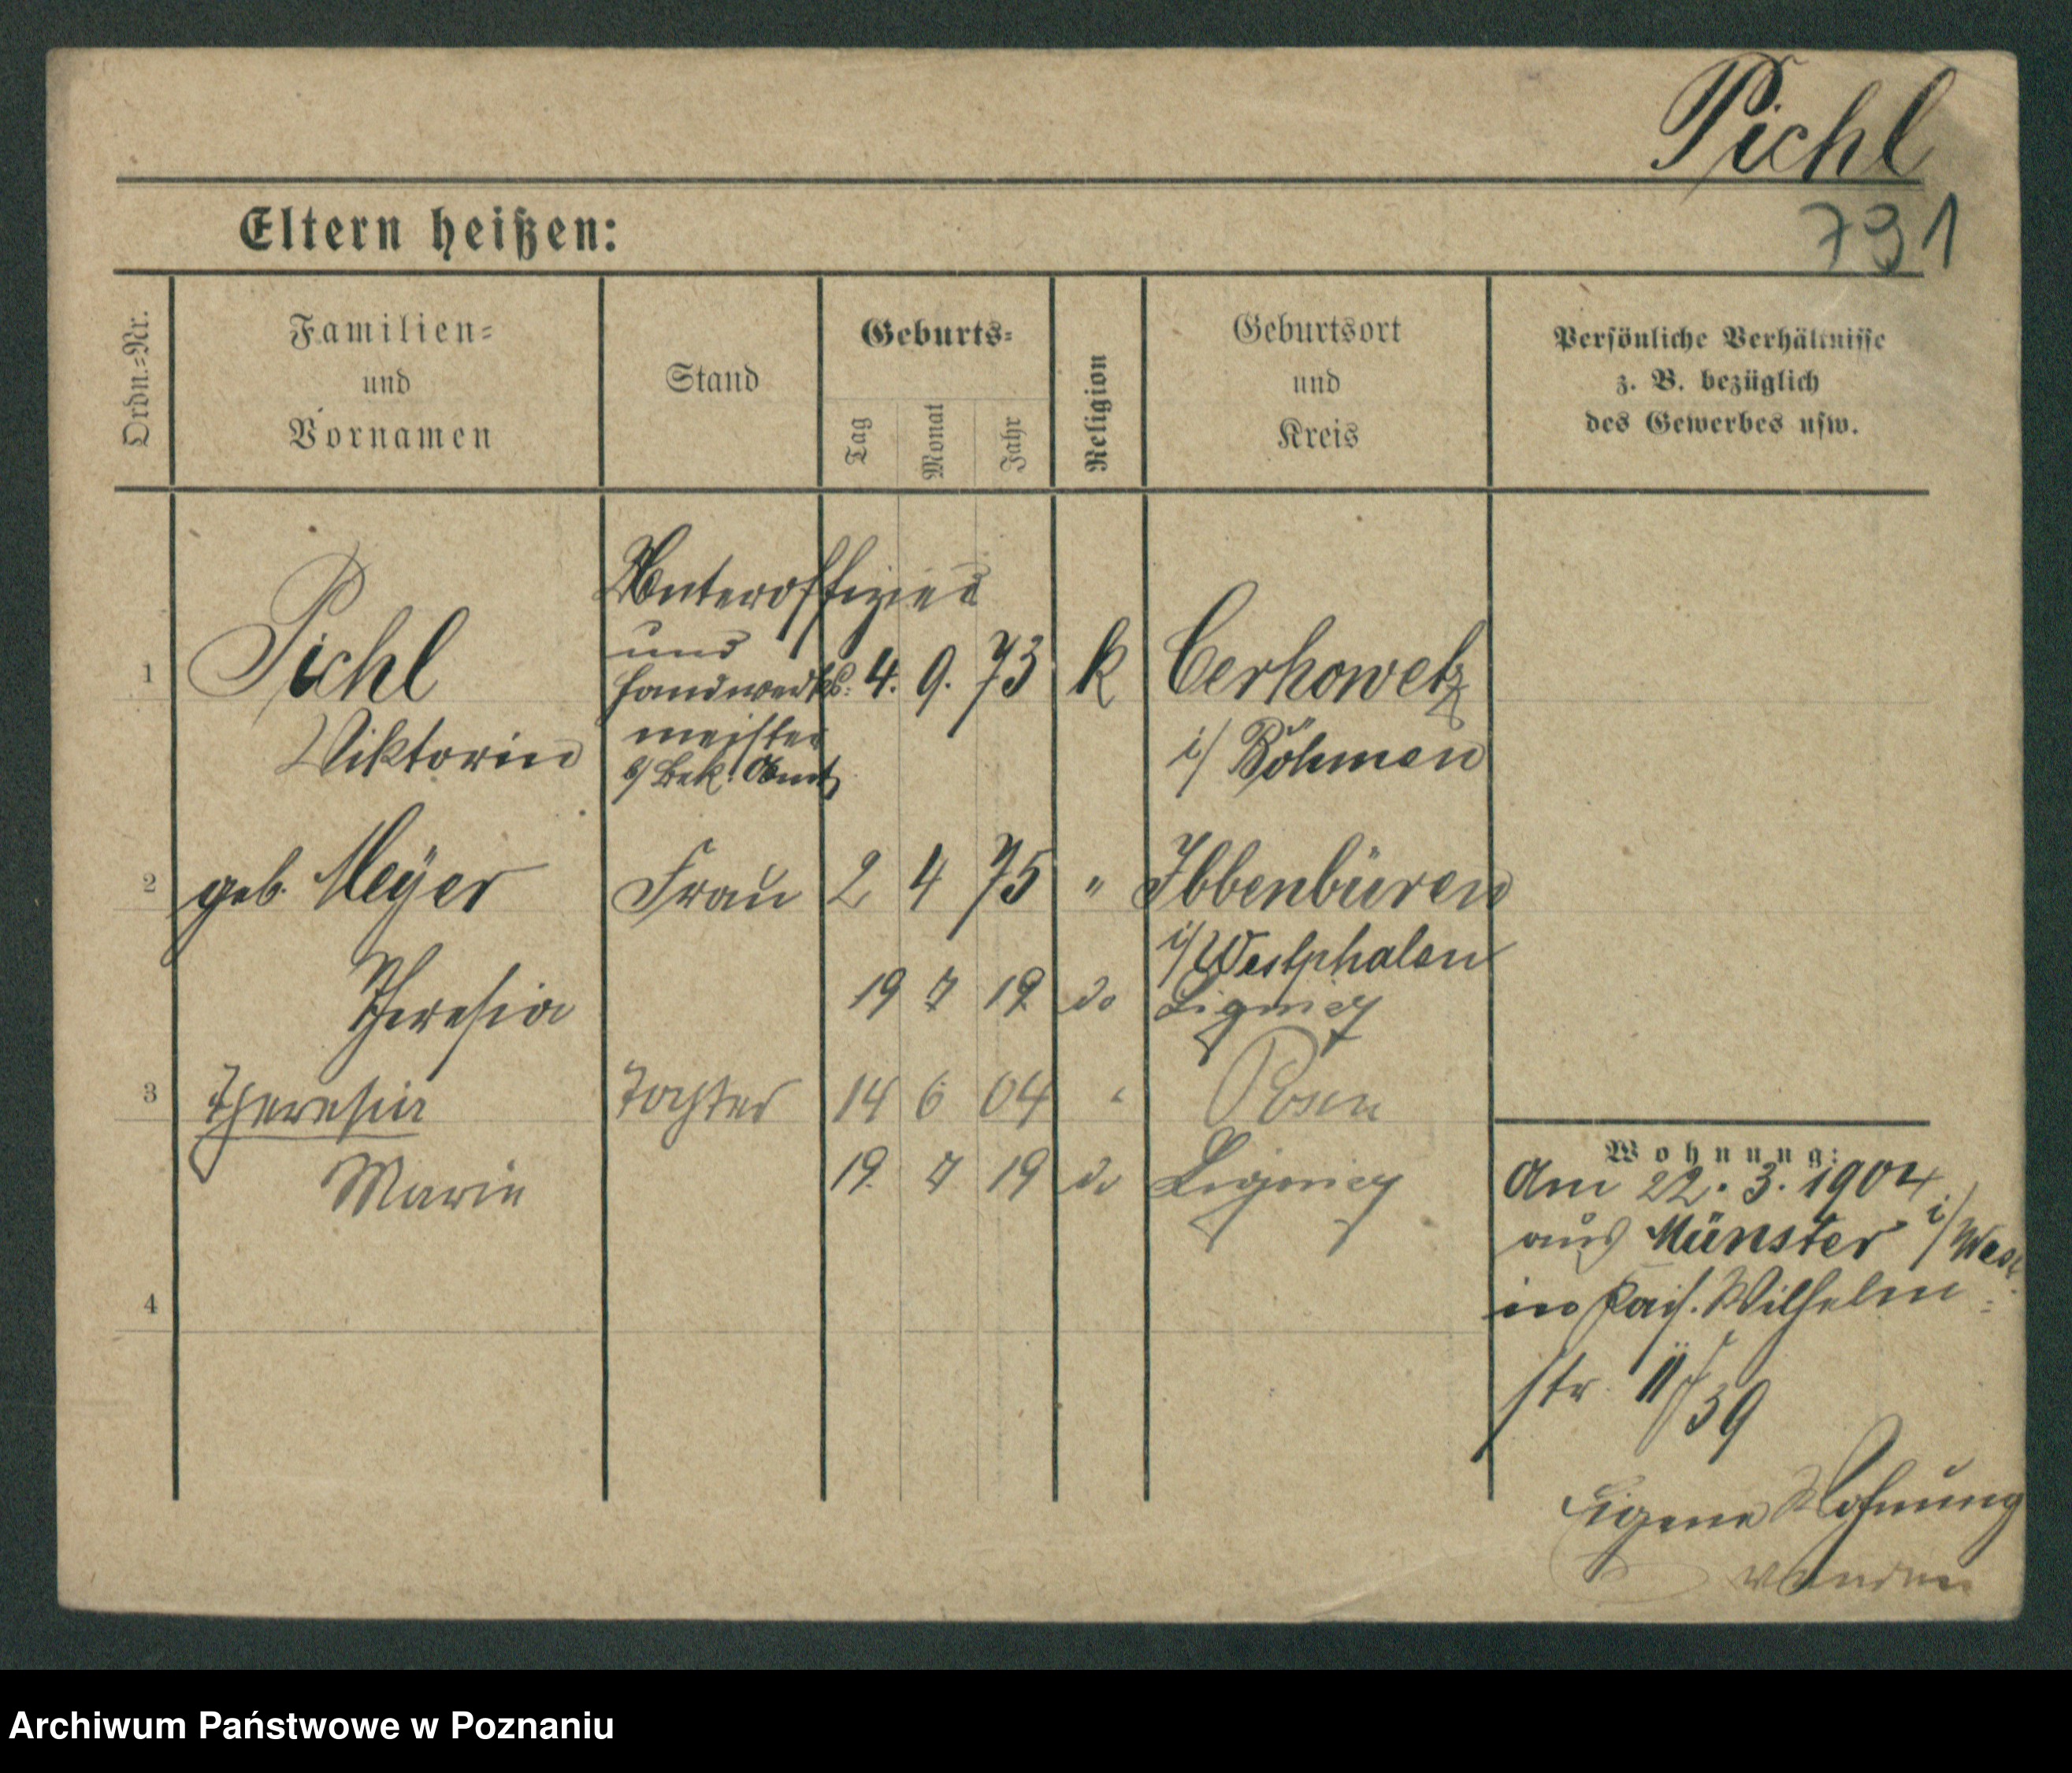 Pichl
731
Eltern heißen:
Ordn.-Nr.
Familien-
und
Vornamen
Stand
Geburts-
Tag
Monat
Jahr
Religion
Geburtsort
und
Kreis
Persönliche Verhältnisse
z. B. bezüglich
des Gewerbes usw.
Unteroffizier
und
1 Pichl Handwerks- 4. 9. 73 k Cerhowetz
Viktorin meister i/ Böhmen
b/ Bek. Amt
2 geb. Meyer Frau 2 4 75 " Ibbenbüren
i/ Westphalen
Theresia 19 7 19 do
3 Theresia Tochter 14 6 04 " Posen
Marie 19. 7 19 do
4
Wohnung:
Am 22. 3. 1904
aus Münster i/ West
in Kais. Wilhelm-
str. 39
Eigene Wohnung
Archiwum Państwowe w Poznaniu